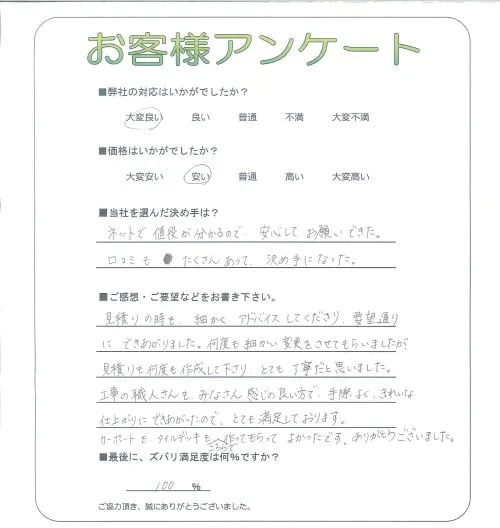 お客様アンケート
■弊社の対応はいかがでしたか？
大変良い 良い 普通 不満 大変不満
■価格はいかがでしたか？
大変安い 安い 普通 高い 大変高い
■当社を選んだ決め手は？
ネットで 値段が分かるので、安心して お願いできた。
口コミも たくさんあって、決め手になった。
■ご感想・ご要望などをお書き下さい。
見積りの時も、細かく アドバイスしてくださり、要望通り
に できあがりました。何度も細かい変更をさせてもらいましたが、
見積りも何度も作成して下さり、とても 丁寧だと思いました。
工事の職人さんも、みなさん 感じの良い方で、手際よく、きれいな
仕上がりにできあがったので、とても満足しております。
カーポートも、タイルデッキも、作ってもらって よかったです。ありがとうございました。
こちらで
■最後に、ズバリ満足度は何%ですか？
100 %
ご協力頂き、誠にありがとうございました。